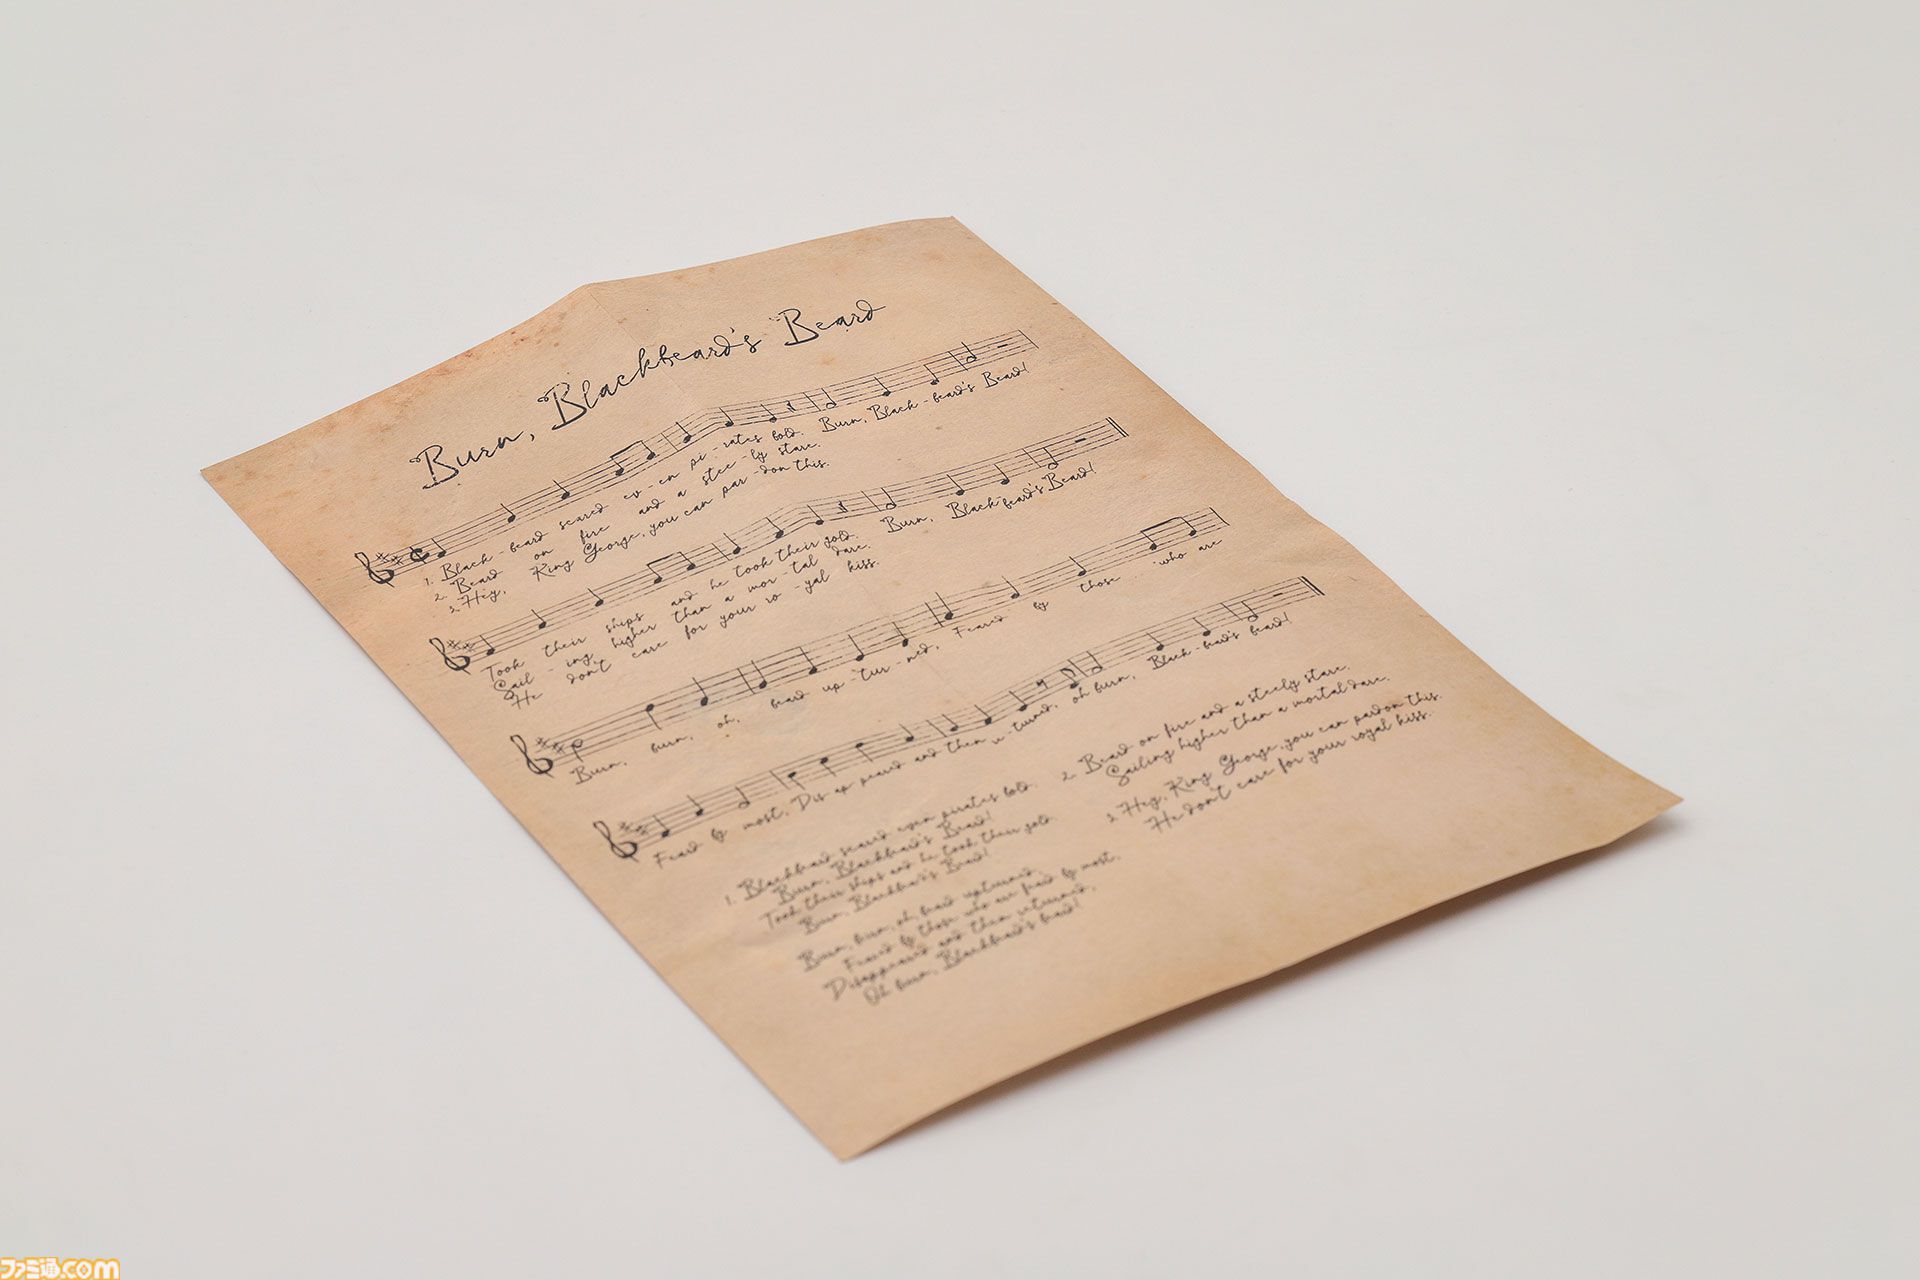 Burn, Blackbeard's Beard
1. Black - beard scared ev - en pi - rates bold. Burn, Black - beard's Beard!
2. Beard on fire and a stee - ly stare.
3. Hey, King George, you can par - don this.
Took their ships and he took their gold. Burn, Black - beard's Beard!
Sail - ing higher than a mor - tal dare.
He don't care for your ro - yal kiss.
Burn, burn, oh, beard up - tur - ned, Feared by those who are
Feard by most. Dis ap peared and then re - turned, oh burn, Black - beard's beard!
1. Blackbeard scared even pirates bold.
Burn, Blackbeard's Beard!
Took their ships and he took their gold.
Burn, Blackbeard's Beard!
Burn, burn, oh, beard upturned,
Feared by those who are feard by most.
Disappeared and then returned,
Oh burn, Blackbeard's beard!
2. Beard on fire and a steely stare.
Sailing higher than a mortal dare.
3. Hey, King George, you can pardon this.
He don't care for your royal kiss.
ファミ通.com